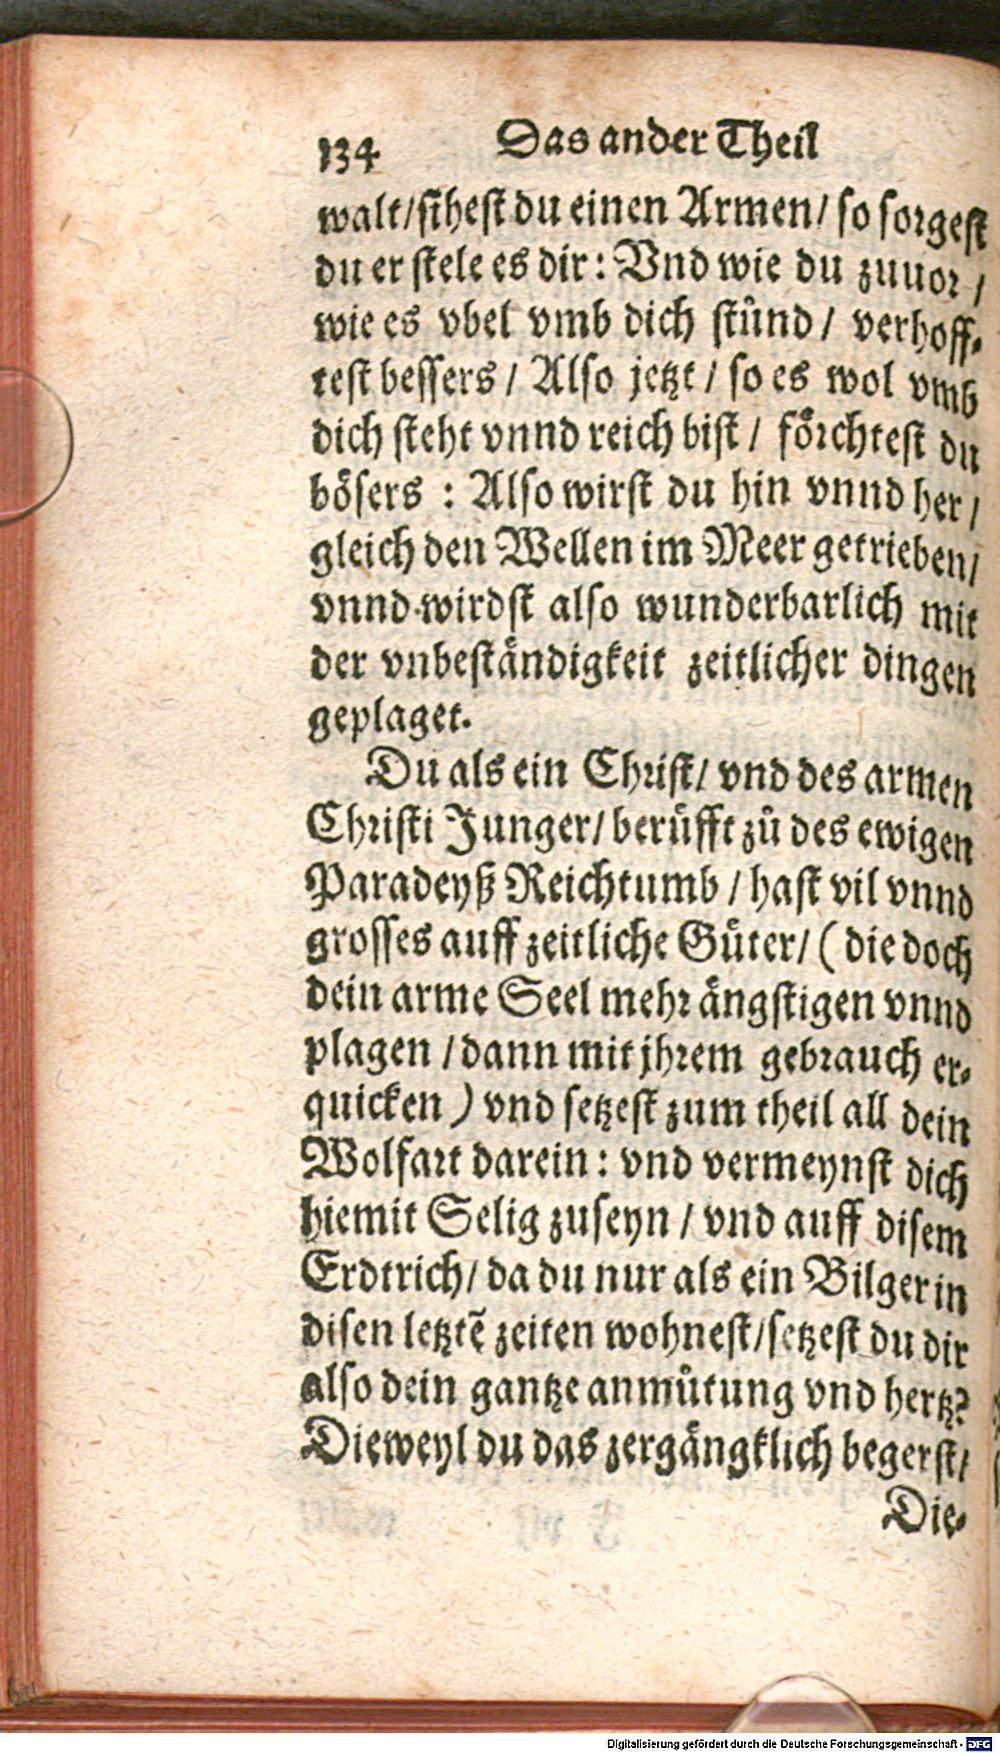 134 Das ander Theil
walt/sihest du einen Armen/ so sorgest
du er stele es dir: Vnd wie du zuuor /
wie es vbel vmb dich stünd / verhoff-
test bessers / Also jetzt / so es wol vmb
dich steht vnnd reich bist / förchtest du
bösers : Also wirst du hin vnnd her /
gleich den Wellen im Meer getrieben/
vnnd wirdst also wunderbarlich mit
der vnbeständigkeit zeitlicher dingen
geplaget.
Du als ein Christ/ vnd des armen
Christi Junger/ berüfft zů des ewigen
Paradeyß Reichtumb / hast vil vnnd
grosses auff zeitliche Güter/ ( die doch
dein arme Seel mehr ängstigen vnnd
plagen / dann mit jhrem gebrauch er-
quicken ) vnd setzest zum theil all dein
Wolfart darein : vnd vermeynst dich
hiemit Selig zuseyn / vnd auff disem
Erdtrich/ da du nur als ein Bilger in
disen letztẽ zeiten wohnest/setzest du dir
also dein gantze anmütung vnd hertz?
Dieweyl du das zergängklich begerst/
Die-
Digitalisierung gefördert durch die Deutsche Forschungsgemeinschaft - DFG